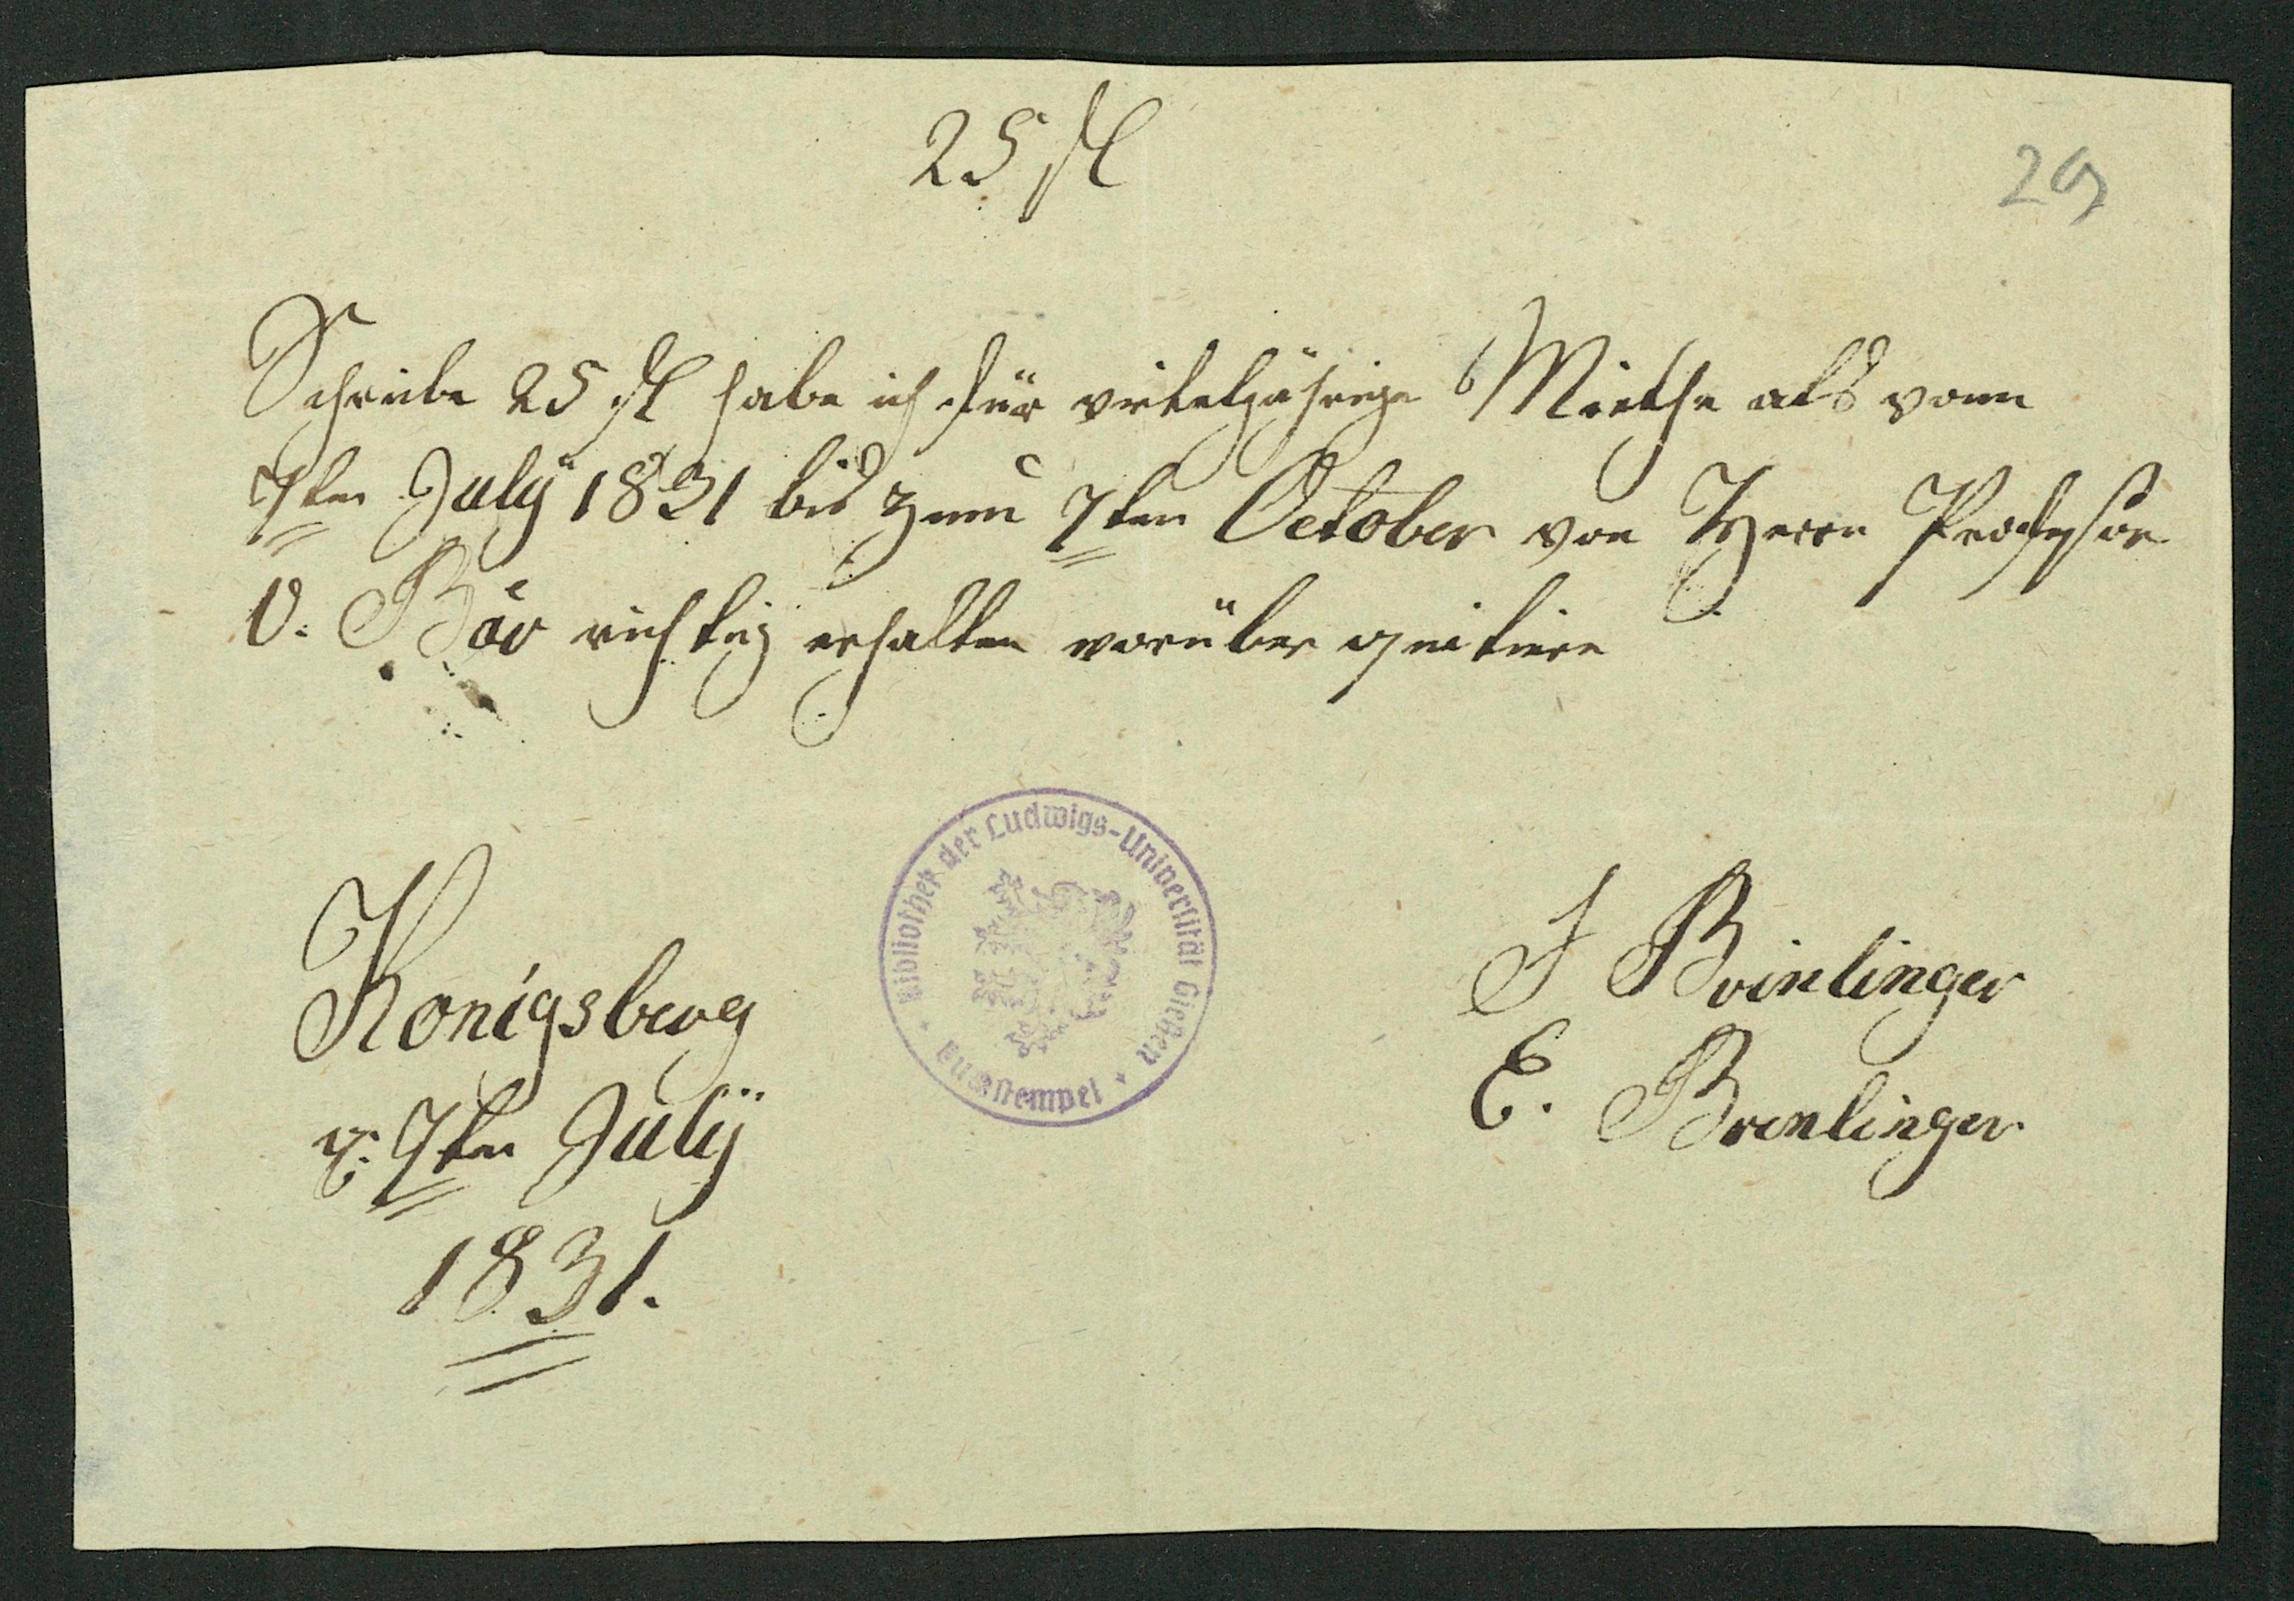 25 fl
29
Schreibe 25 fl habe ich für virteljährige Miethe als vom
7ten July 1831 bis zum 7ten October von Herrn Professor
v. Bär richtig erhalten worüber quitiere
Bibliothek der Ludwigs-Universität Gießen
Buchstempel
Konigsberg
d. 7ten July
1831.
J Brinlinger
E. Brenlinger